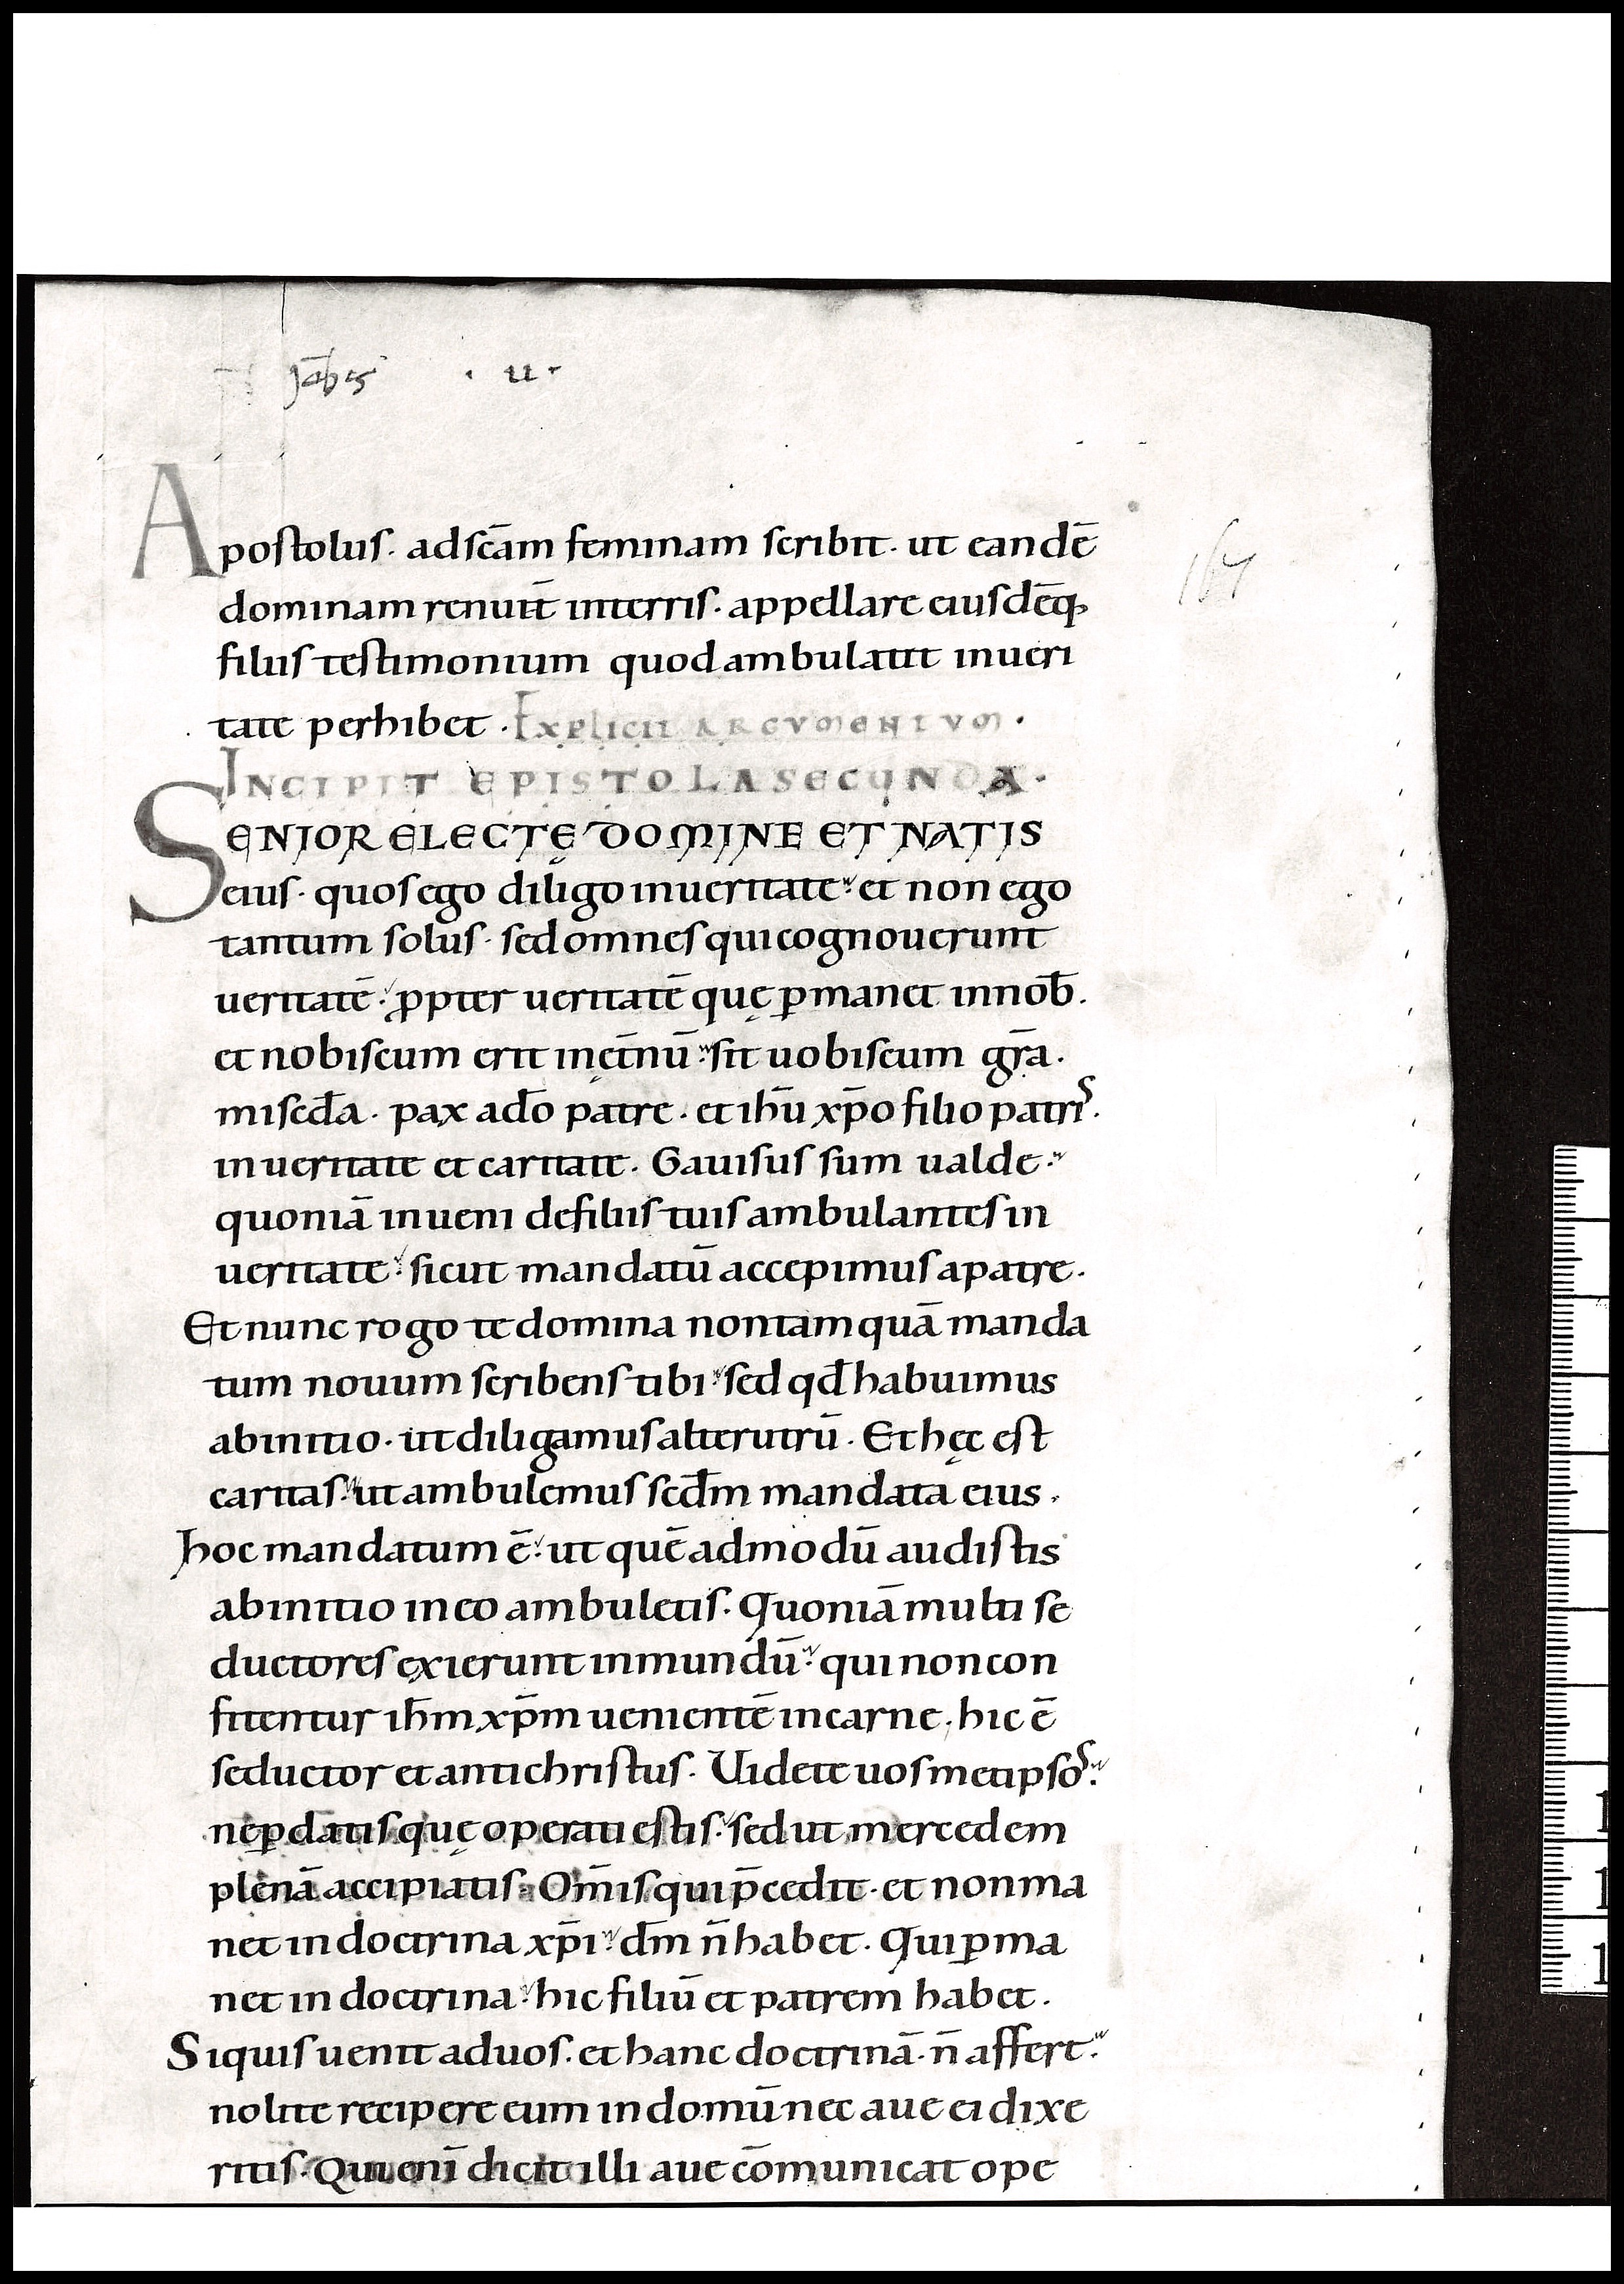 Joħis · ii ·
167
Apostolus · ad sc̄am feminam scribit · ut eandē
dominam renuit̄ interris · appellare eiusdēq;
filiis testimonium quod ambulatit inueri
tate perhibet · Explicit argumentum ·
Incipit epistola secunda ·
Senior electę domine et natis
eius · quos ego diligo inueritate · et non ego
tantum solus · sed omnes qui cognouerunt
ueritatē · ꝓpter ueritatē quę ꝑmanet innob̄ ·
et nobiscum erit inęt̄nū · sit uobiscum gr̄a ·
misc̄d̄a · pax ad̄o patre · et ih̄u xp̄o filio patris ·
inueritate et caritate · Gauisus sum ualde ·
quoniā inueni defiliis tuis ambulantes in
ueritate · sicut mandatū accepimus apatre ·
Et nunc rogo te domina nontamquā manda
tum nouum scribens tibi · sed qd̄ habuimus
abinitio · ut diligamus alterutrū · Et hęc est
caritas · ut ambulemus sc̄dm mandata eius ·
hoc mandatum ē · ut quēadmodū audistis
abinitio ineo ambuletis · Quoniā multi se
ductores exierunt inmundū · qui noncon
fitentur ih̄m xp̄m uenientē incarne · hic ē
seductor et antichristus · Uidete uosmetipsos ·
neꝑdatis quę operati estis · sed ut mercedem
plenā accipiatis · Om̄is qui p̄cedit · et nonma
net in doctrina xp̄i · dm̄ n̄ habet · Qui ꝑma
net in doctrina · hic filiū et patrem habet ·
Siquis uenit aduos · et hanc doctrinā · n̄ affert ·
nolite recipere eum in domū nec aue ei dixe
ritis · Qui enī dicit illi aue cōmunicat ope